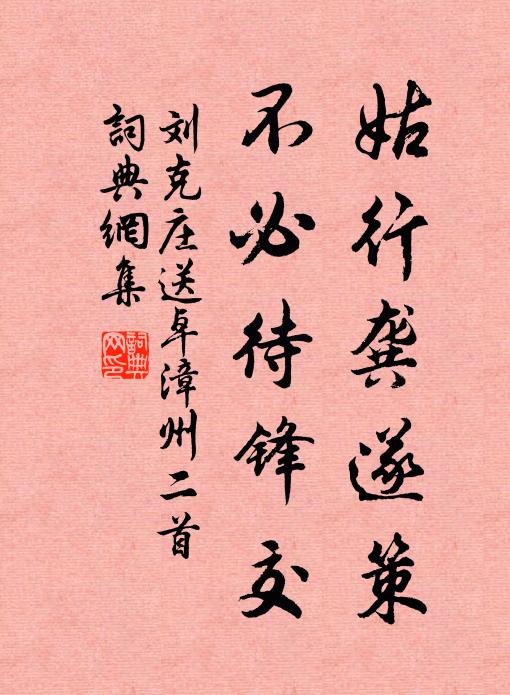 姑行龚遂策
不必待锋交
刘克庄送卓漳州二首
詞典網集
詞典网印